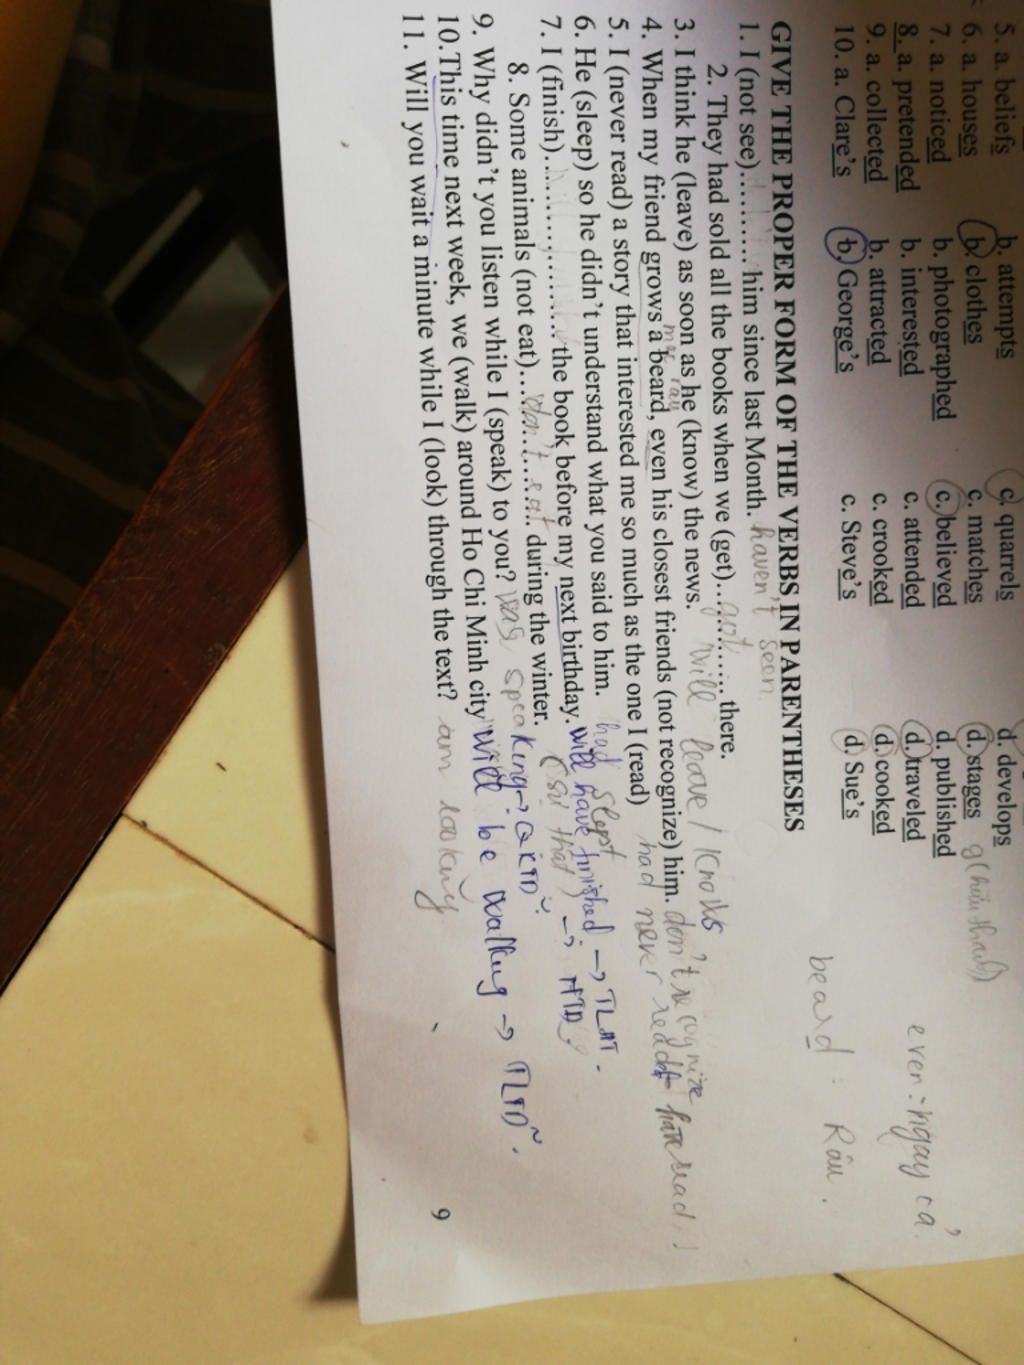 5. a. beliefs b. attempts c. quarrels d. develops
6. a. houses b. clothes c. matches d. stages g(hữu thanh)
7. a. noticed b. photographed c. believed d. published
8. a. pretended b. interested c. attended d. traveled even = ngay cả
9. a. collected b. attracted c. crooked d. cooked
10. a. Clare's b. George's c. Steve's d. Sue's beard : Râu.
GIVE THE PROPER FORM OF THE VERBS IN PARENTHESES
1. I (not see).......... him since last Month. haven't seen
2. They had sold all the books when we (get)...got.......there.
3. I think he (leave) as soon as he (know) the news. will leave / knows
mọc râu
4. When my friend grows a beard, even his closest friends (not recognize) him. don't recognize
5. I (never read) a story that interested me so much as the one I (read) had never read have read
6. He (sleep) so he didn't understand what you said to him. had slept
7. I (finish)................... the book before my next birthday. will have finished. → TLHT.
8. Some animals (not eat)....don't eat.... during the winter. (sự thật) → HTD
9. Why didn't you listen while I (speak) to you? was speaking → QKTD
10. This time next week, we (walk) around Ho Chi Minh city will be walking → TLTD.
11. Will you wait a minute while I (look) through the text? am looking
9